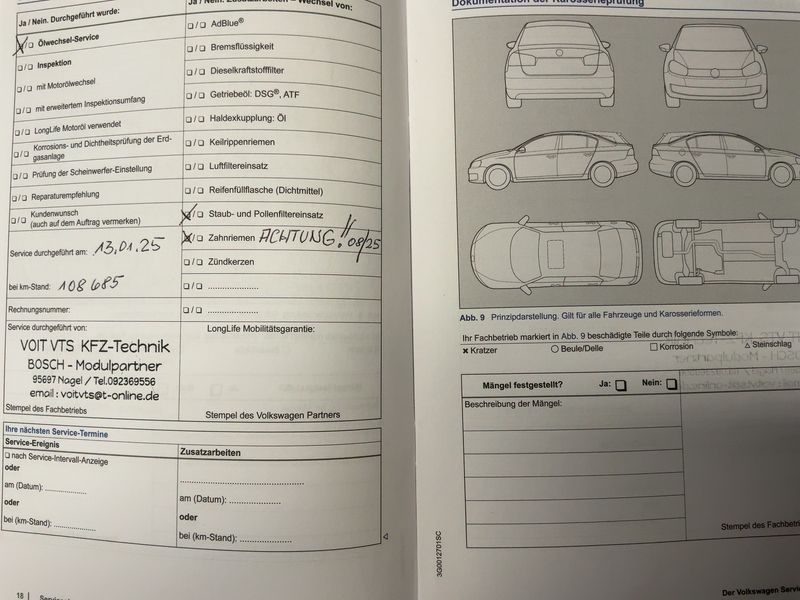 Ja / Nein. Durchgeführt wurde:
❏/❏ Ölwechsel-Service
❏/❏ Inspektion
❏/❏ mit Motorölwechsel
❏/❏ mit erweitertem Inspektionsumfang
❏/❏ LongLife Motoröl verwendet
❏/❏ Korrosions- und Dichtheitsprüfung der Erd-
gasanlage
❏/❏ Prüfung der Scheinwerfer-Einstellung
❏/❏ Reparaturempfehlung
❏/❏ Kundenwunsch
(auch auf dem Auftrag vermerken)
Service durchgeführt am: 13.01.25
bei km-Stand: 108685
Rechnungsnummer:
Service durchgeführt von:
VOIT VTS KFZ-Technik
BOSCH - Modulpartner
95697 Nagel / Tel.092369556
email : voitvts@t-online.de
Stempel des Fachbetriebs
Ja / Nein. Zusatzarbeiten – Wechsel von:
❏/❏ AdBlue®
❏/❏ Bremsflüssigkeit
❏/❏ Dieselkraftstofffilter
❏/❏ Getriebeöl: DSG®, ATF
❏/❏ Haldexkupplung: Öl
❏/❏ Keilrippenriemen
❏/❏ Luftfiltereinsatz
❏/❏ Reifenfüllflasche (Dichtmittel)
❏/❏ Staub- und Pollenfiltereinsatz
❏/❏ Zahnriemen ACHTUNG!! 08/25
❏/❏ Zündkerzen
❏/❏ ....................
❏/❏ ....................
LongLife Mobilitätsgarantie:
Stempel des Volkswagen Partners
Ihre nächsten Service-Termine
Service-Ereignis
❏ nach Service-Intervall-Anzeige
oder
am (Datum): ................
oder
bei (km-Stand): ................
Zusatzarbeiten
................................................
am (Datum): ....................
oder
bei (km-Stand): ....................
18
Dokumentation der Karosserieprüfung
Abb. 9 Prinzipdarstellung. Gilt für alle Fahrzeuge und Karosserieformen.
Ihr Fachbetrieb markiert in Abb. 9 beschädigte Teile durch folgende Symbole:
✖ Kratzer ◯ Beule/Delle ☐ Korrosion △ Steinschlag
Mängel festgestellt? Ja: ❏ Nein: ❏
Beschreibung der Mängel:
Stempel des Fachbetri
3G0012701SC
Der Volkswagen Servic